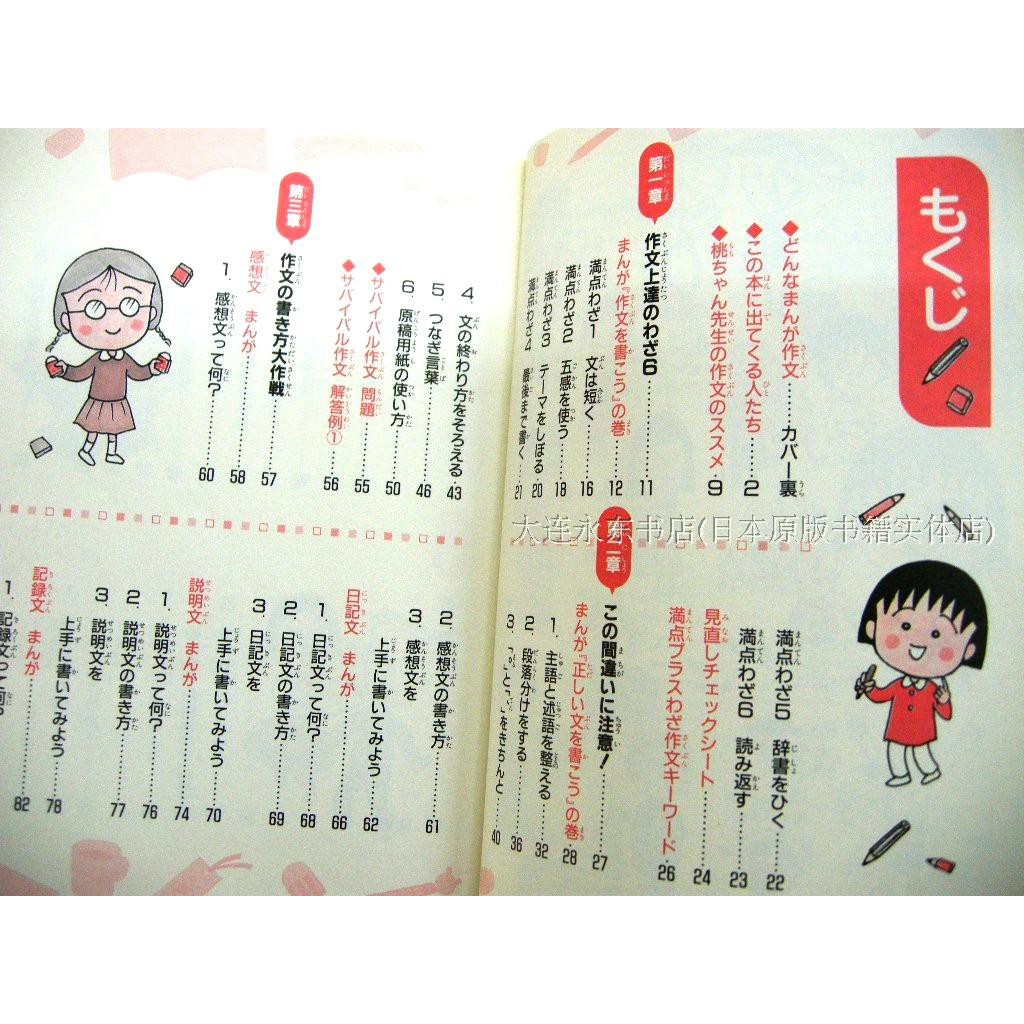 もくじ
◆どんなまんが作文……カバー裏
◆この本に出てくる人たち……2
◆桃ちゃん先生の作文のススメ…9
第一章
作文上達のわざ6……11
まんが『作文を書こう』の巻…12
満点わざ1 文は短く……16
満点わざ2 五感を使う……18
満点わざ3 テーマをしぼる…20
満点わざ4 最後まで書く…21
満点わざ5 辞書をひく……22
満点わざ6 読み返す……23
見直しチェックシート……24
満点プラスわざ作文キーワード…26
第二章
この間違いに注意!……27
まんが『正しい文を書こう』の巻…28
1. 主語と述語を整える…32
2. 段落分けをする……36
3. 「。」と「、」をきちんと…40
4. 文の終わり方をそろえる…43
5. つなぎ言葉……46
6. 原稿用紙の使い方……50
◆サバイバル作文 問題……55
◆サバイバル作文 解答例①……56
第三章
作文の書き方大作戦……57
感想文 まんが……58
1. 感想文って何?……60
2. 感想文の書き方……61
3. 感想文を
上手に書いてみよう……62
日記文 まんが……66
1. 日記文って何?……68
2. 日記文の書き方……69
3. 日記文を
上手に書いてみよう……70
説明文 まんが……74
1. 説明文って何?……76
2. 説明文の書き方……77
3. 説明文を
上手に書いてみよう……78
記録文 まんが……82
1. 記録文って何?
大连永东书店(日本原版书籍实体店)